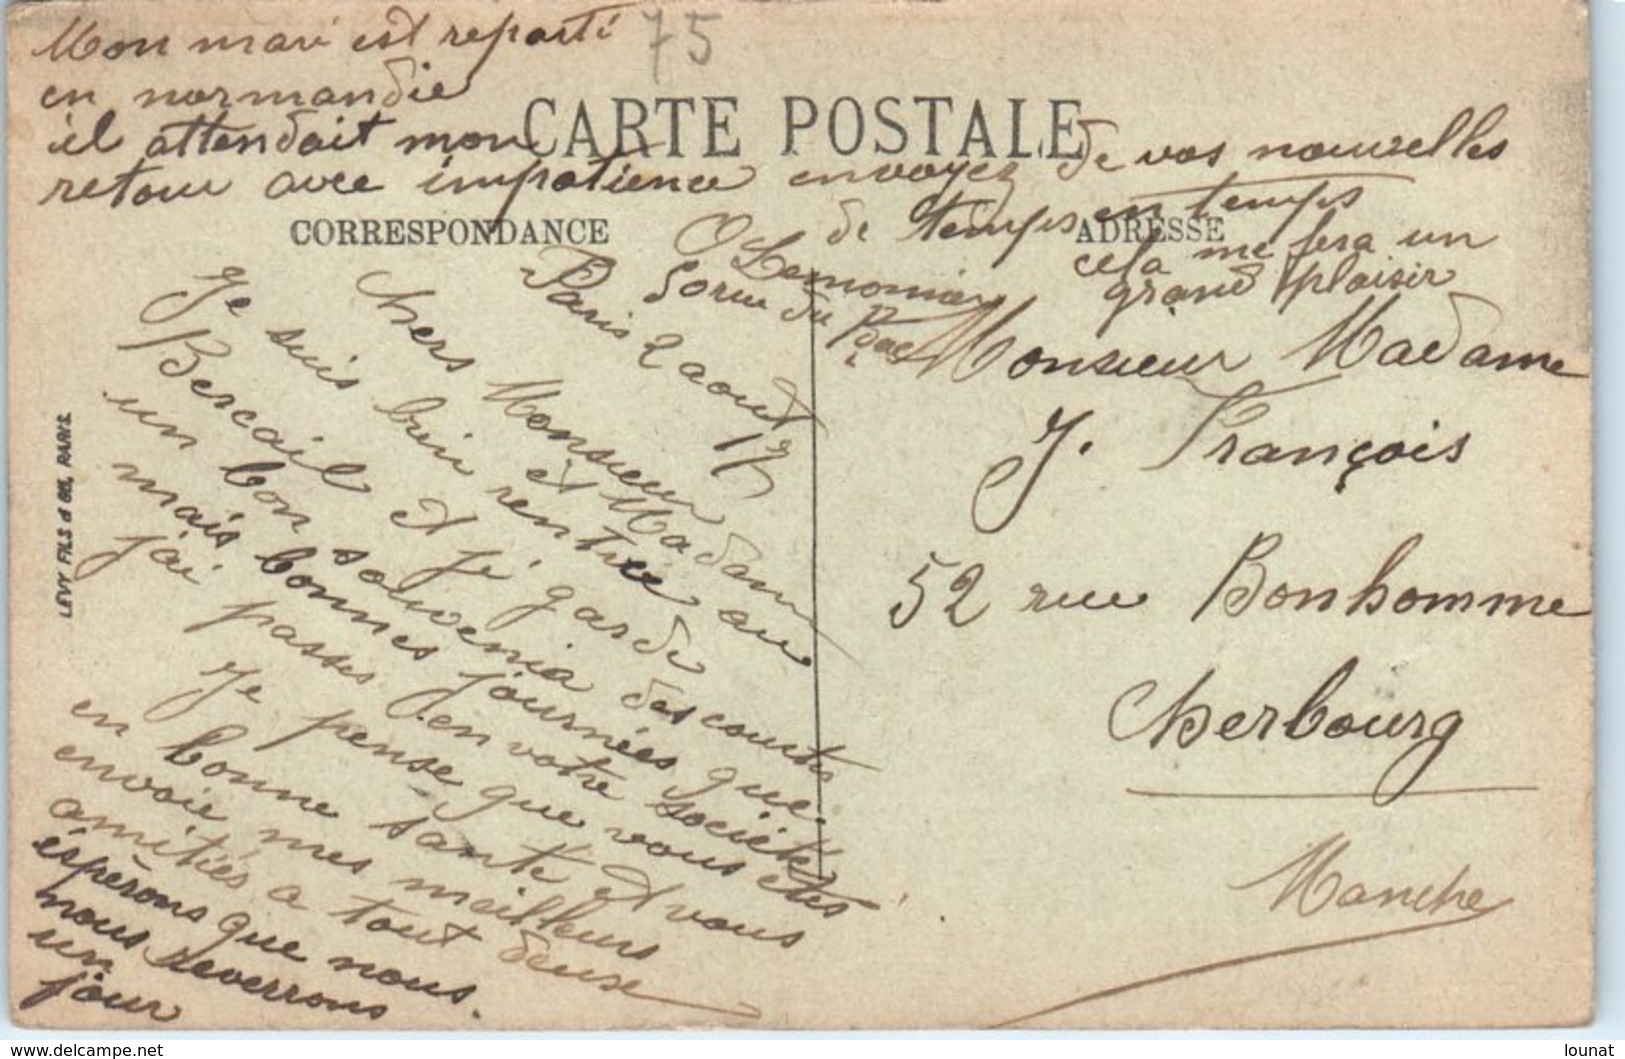 75
Mon mari est reparti
en normandie
il attendait mon
retour avec impatience envoyez de vos nouvelles
de temps en temps
cela me fera un
grand plaisir
CARTE POSTALE
CORRESPONDANCE
ADRESSE
O Lemonier
50 rue du Bac
Paris 2 aout 17
Chers Monsieur et Madame
Je suis bien rentrée au
Bercail et je garde
un bon souvenir des courtes
mais bonnes journées que
j'ai passés en votre société
Je pense que vous etes
en bonne santé et vous
envoie mes meilleurs
amitiés a tout deux
éspèrons que nous
nous reverrons
un
jour
Monsieur Madame
J. François
52 rue Bonhomme
Cherbourg
Manche
LEVY FILS & Cie, PARIS
www.delcampe.net
lounat